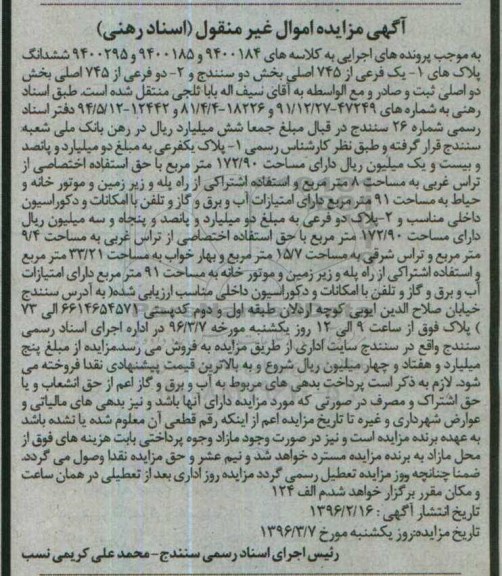 آگهی مزایده اموال غیر منقول (اسناد رهنی)
به موجب پرونده های اجرایی به کلاسه های ۹۴۰۰۱۸۴ و ۹۴۰۰۱۸۵ و ۹۴۰۰۲۹۵ ششدانگ
پلاک های ۱- یک فرعی از ۷۴۵ اصلی بخش دو سنندج و ۲- دو فرعی از ۷۴۵ اصلی بخش
دو اصلی ثبت و صادر و مع الواسطه به آقای سیف اله بابا ثلجی منتقل شده است. طبق اسناد
رهنی به شماره های ۴۷۲۴۹-۹۱/۱۲/۲۷ و ۱۸۲۲۶-۸۱/۴/۴ و ۱۲۴۴۲-۹۴/۵/۱۲ دفتر اسناد
رسمی شماره ۲۶ سنندج در قبال مبلغ جمعا شش میلیارد ریال در رهن بانک ملی شعبه
سنندج قرار گرفته و طبق نظر کارشناس رسمی ۱- پلاک یکفرعی به مبلغ دو میلیارد و پانصد
و بیست و یک میلیون ریال دارای مساحت ۱۷۲/۹۰ متر مربع با حق استفاده اختصاصی از
تراس غربی به مساحت ۸ متر مربع و استفاده اشتراکی از راه پله و زیر زمین و موتور خانه و
حیاط به مساحت ۹۱ متر مربع دارای امتیازات آب و برق و گاز و تلفن با امکانات و دکوراسیون
داخلی مناسب و ۲-پلاک دو فرعی به مبلغ دو میلیارد و پانصد و پنجاه و سه میلیون ریال
دارای مساحت ۱۷۲/۹۰ متر مربع با حق استفاده اختصاصی از تراس غربی به مساحت ۹/۴
متر مربع و تراس شرقی به مساحت ۱۵/۷ متر مربع و بهار خواب به مساحت ۳۳/۲۱ متر مربع
و استفاده اشتراکی از راه پله و زیر زمین و موتور خانه به مساحت ۹۱ متر مربع دارای امتیازات
آب و برق و گاز و تلفن با امکانات و دکوراسیون داخلی مناسب ارزیابی شده( به آدرس سنندج
خیابان صلاح الدین ایوبی کوچه اردلان طبقه اول و دوم کدپستی ۶۶۱۴۶۵۴۵۷۱ الی ۷۳
) پلاک فوق از ساعت ۹ الی ۱۲ روز یکشنبه مورخه ۹۶/۳/۷ در اداره اجرای اسناد رسمی
سنندج واقع در سنندج سایت اداری از طریق مزایده به فروش می رسد.مزایده از مبلغ پنج
میلیارد و هفتاد و چهار میلیون ریال شروع و به بالاترین قیمت پیشنهادی نقدا فروخته می
شود. لازم به ذکر است پرداخت بدهی های مربوط به آب و برق و گاز اعم از حق انشعاب و یا
حق اشتراک و مصرف در صورتی که مورد مزایده دارای آنها باشد و نیز بدهی های مالیاتی و
عوارض شهرداری و غیره تا تاریخ مزایده اعم از اینکه رقم قطعی آن معلوم شده یا نشده باشد
به عهده برنده مزایده است و نیز در صورت وجود مازاد وجوه پرداختی بابت هزینه های فوق از
محل مازاد به برنده مزایده مسترد خواهد شد و نیم عشر و حق مزایده نقدا وصول می گردد.
ضمنا چنانچه روز مزایده تعطیل رسمی گردد مزایده روز اداری بعد از تعطیلی در همان ساعت
و مکان مقرر برگزار خواهد شد.م الف ۱۲۴
تاریخ انتشار آگهی: ۱۳۹۶/۲/۱۶
تاریخ مزایده:روز یکشنبه مورخ ۱۳۹۶/۳/۷
رئیس اجرای اسناد رسمی سنندج-محمد علی کریمی نسب